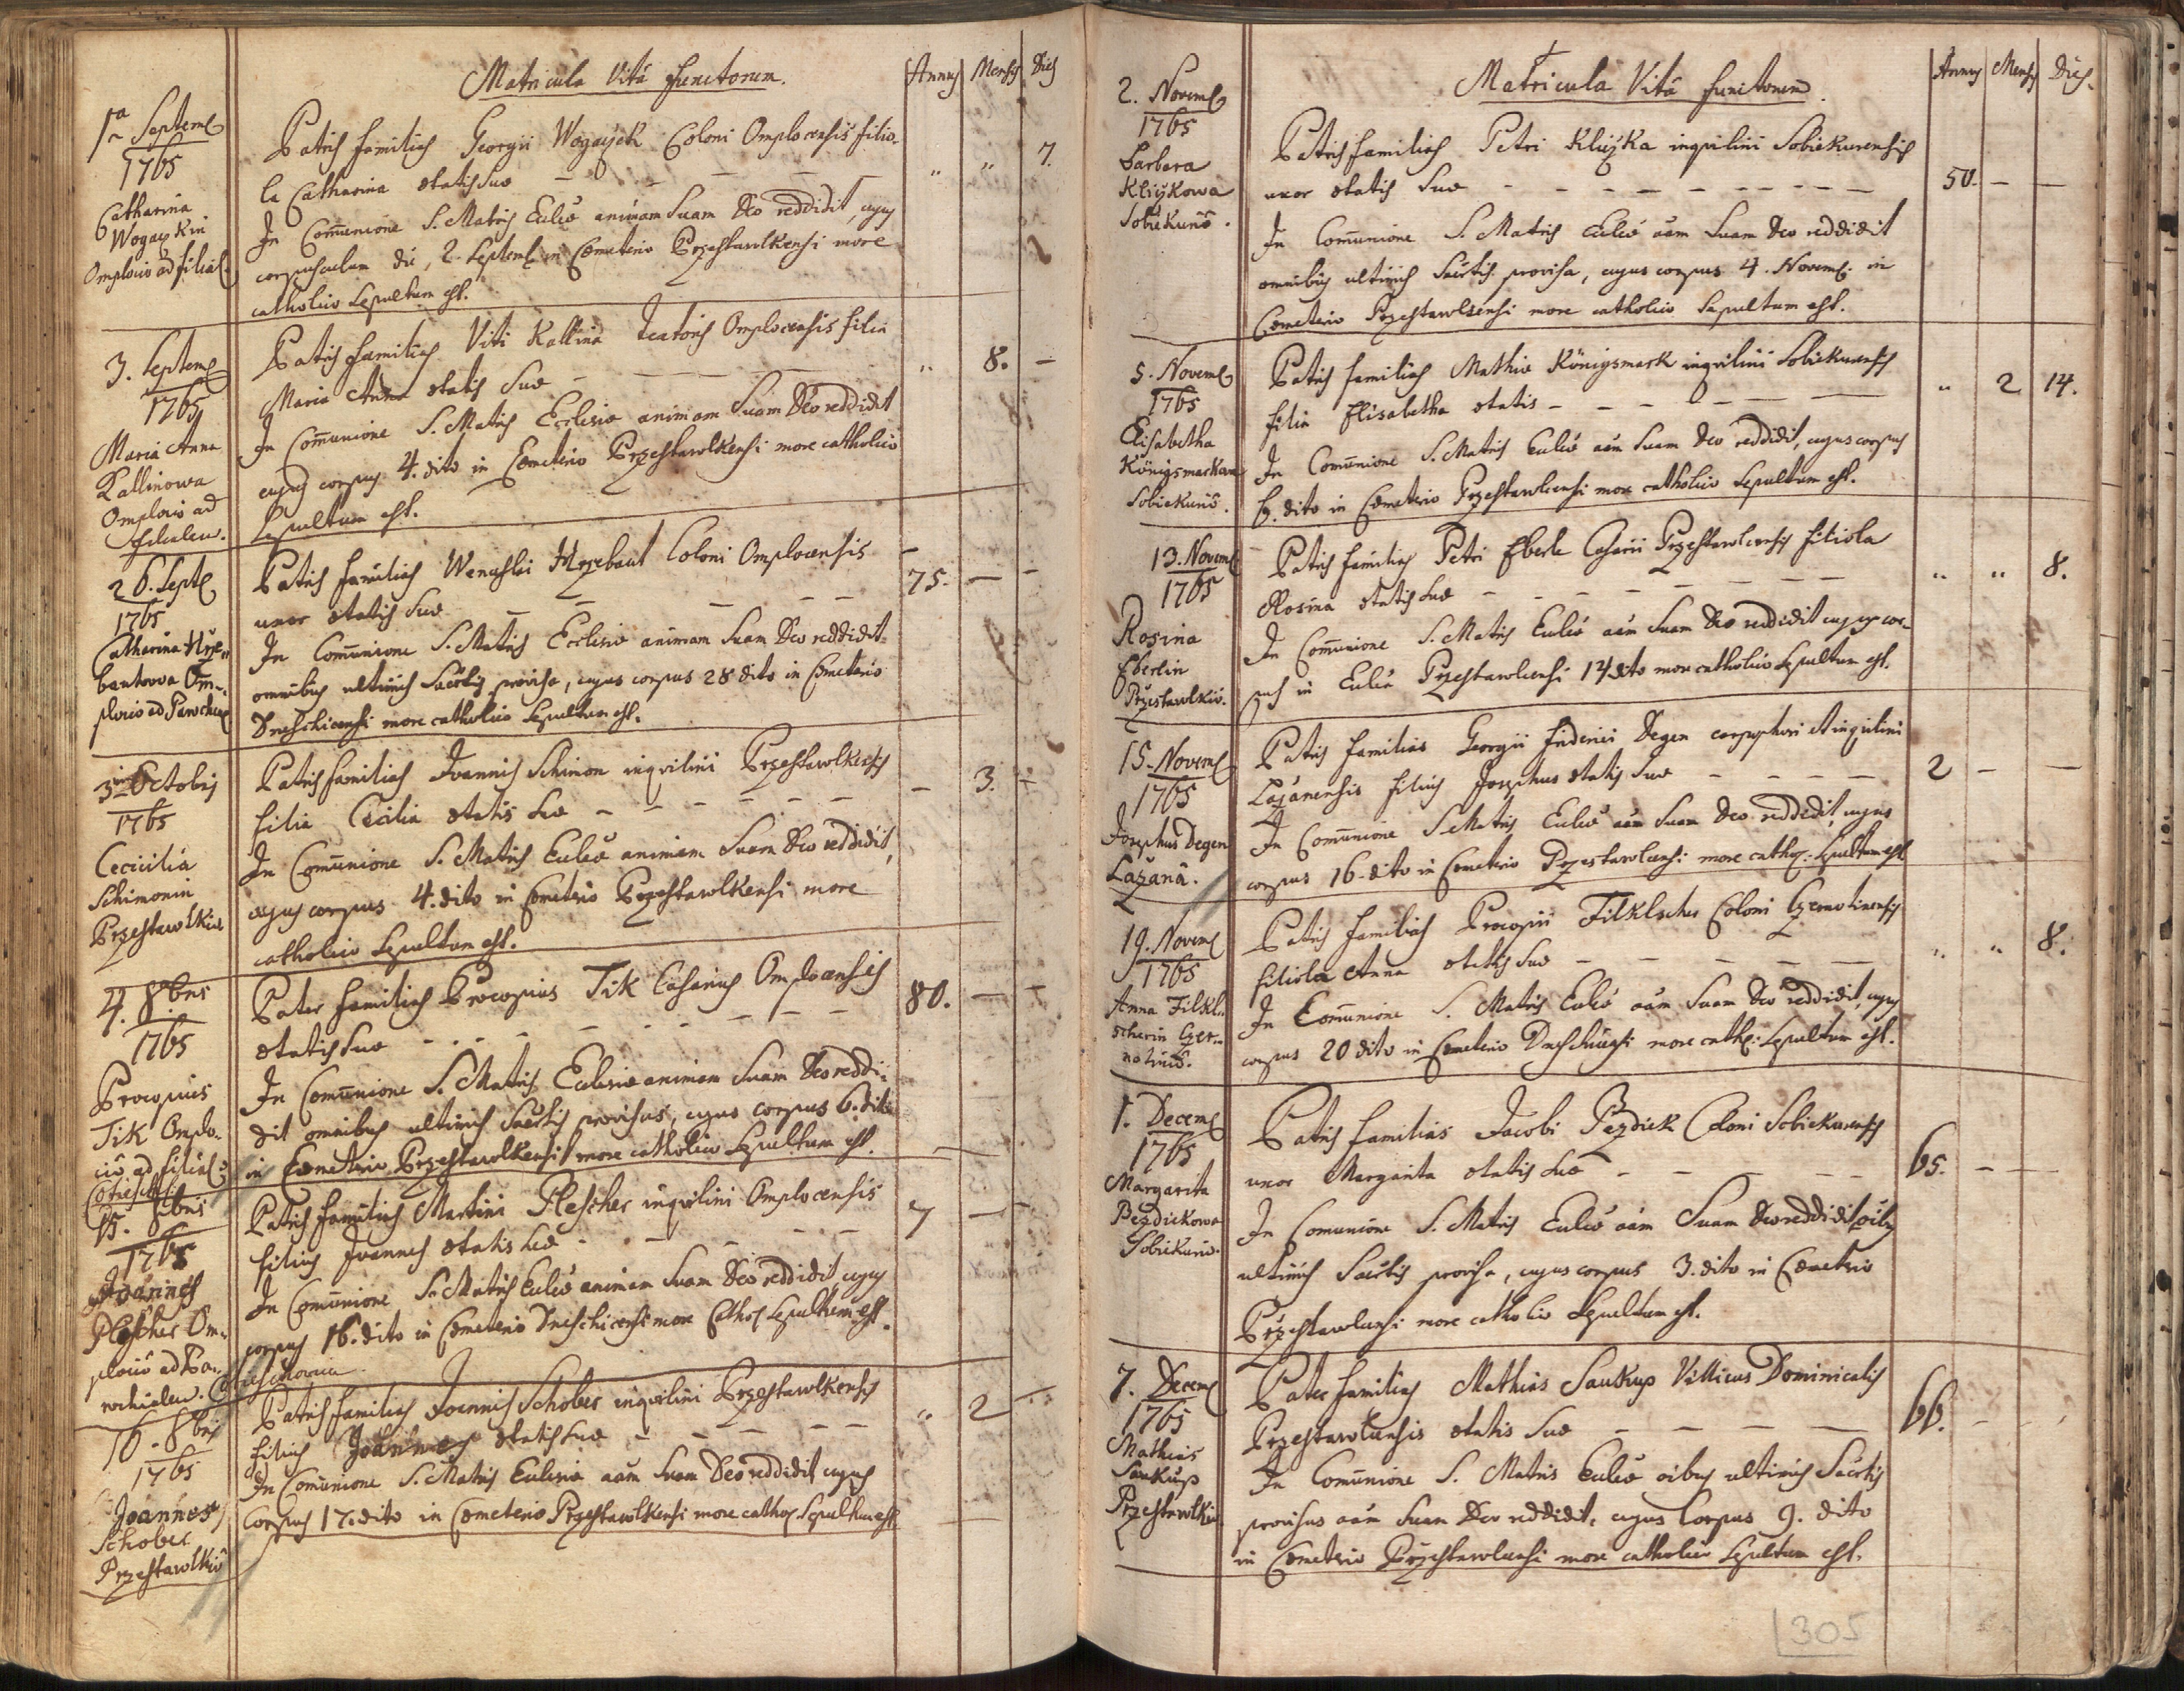 Matricula Vitâ functorum.
Annus Mensis Dies
1ma Septemb
1765
Catharina
Wogaykin
Omplocio ad filial.
Patris familias Georgii Wogayck Coloni Omplocensis filio-
la Catharina ætatis suæ — — — — „ „ 7.
In Com̃unione S. Matris Eccl̃iæ animam Suam Deo reddidit, cujus
corpusculum die, 2. Septemb in Cœmeterio Przestawlkensi more
catholico Sepultum est.
3. Septemb
1765
Maria Anna
Kallinowa
Omplocio ad
Patris familias Viti Kallina Omplocensis filia
Maria Anna ætatis Suæ — — — „ 8. —
In Com̃unione S. Matris Ecclesiæ animam Suam Deo reddidit
cujus corpus 4. dito in Cœmeterio Przestawlkensi more catholico
Sepultum est.
26. Septb
1765
Catharina Hrze„
bautowa Om„
plocio ad Paroch
Patris familias Wenceslai Hrzebaut Coloni Omplocensis
uxor ætatis Suæ — — — — — 75. — —
In Com̃unione S. Matris Ecclesiæ animam Suam Deo reddidit
omnibus ultimis Sacr̃tis provisa, cujus corpus 28 dito in Cœmeterio
Dneschicensi more catholico Sepultum est.
3. Octobris
1765
Cecicilia
Schimonin
Przestawlkio
Patris familias Joannis Schimon inquilini Przestawlkensis
filia Cicilia ætatis suæ — — — — — 3. —
In Com̃unione S. Matris Eccl̃iæ animam Suam Deo reddidit,
cujus corpus 4. dito in Cœmeterio Przestawlkensi more
catholico Sepultum est.
4. 8bris
1765
Procopius
Tik Omplo-
cio ad filial
Pater familias Procopius Tik Casarius Omplocensis
ætatis suæ — — — — — — 80. — —
In Com̃unione S. Matris Ecclesiæ animam Suam Deo reddi-
dit omnibus ultimis Sacr̃tis provisus, cujus corpus 6. dito
in Cœmeterio Przestawlkensi more catholico Sepultum est.
15. 8bris
1765
Joannes
Plescher Om„
plocio ad Pa„
rochialem.
Patris familias Martini Plescher inquilini Omplocensis
filius Joannes ætatis suæ — — — — 7 — —
In Com̃unione S. Matris Eccl̃iæ animam Suam Deo reddidit cujus
corpus 16. dito in Cœmeterio Dneschicensi more Cathol Sepultum est.
16. 8bris
1765
Joannes
Schober
Przestawlkio
Patris familias Joannis Schober inquilini Przestawlkensis
filius Joannes ætatis suæ — — — — „ 2 —
In Com̃unione S. Matris Ecclesiæ aãm Suam Deo reddidit cujus
Corpus 17. dito in Cœmeterio Przestawlkensi more cathol Sepultum est
Matricula Vitâ functorum.
Annus Mensis Dies.
2. Novemb
1765
Barbara
Kliykowa
Sobiekurio.
Patris familias Petri Kliyka inquilini Sobiekurensis
uxor ætatis Suæ — — — — — — 50. — —
In Com̃unione S. Matris Eccl̃iæ aãm Suam Deo reddidit
omnibus ultimis Sacr̃tis provisa, cujus corpus 4. Novemb. in
Cœmeterio Przestawlcensi more catholico Sepultum est.
5. Novemb
1765
Elisabetha
Königsmarkowa
Sobiekurio.
Patris familias Mathiæ Königsmark inquilini Sobiekurensis
filia Elisabetha ætatis — — — — — „ 2 14.
In Com̃unione S. Matris Eccl̃iæ aãm Suam Deo reddidit, cujus corpus
6. dito in Cœmeterio Przestawlcensi more catholico Sepultum est.
13. Novemb
1765
Rosina
Eberlin
Przestawlkio.
Patris familias Petri Eberle Casarii Przestawlcensis filiola
Rosina ætatis suæ — — — — — „ „ 8.
In Com̃unione S. Matris Eccl̃iæ aãm Suam Deo reddidit cujus cor-
pus in Eccl̃ia Przestawlcensi 14 dito more catholico Sepultum est.
15. Novemb
1765
Josephus Degen
Lazana.
Patris familias Georgii Friderici Degen et inquilini
Lazanensis filius Josephus ætatis suæ — — — — 2 — —
In Com̃unione S. Matris Eccl̃iæ aãm Suam Deo reddidit, cujus
corpus 16. dito in Cœmeterio Przestawlcensi more cathol: Sepultum est
19. Novemb
1765
Anna Filkl„
scherin Czer„
notinio.
Patris familias Procopii Filklscher Coloni Czernotinensis
filiola Anna ætatis suæ — — — — — „ „ 8.
In Com̃unione S. Matris Eccl̃iæ aãm Suam Deo reddidit, cujus
corpus 20 dito in Cœmeterio Dneschicensi more cathol: Sepultum est.
1. Decemb
1765
Margarita
Pezdickowa
Sobiekurio.
Patris familias Jacobi Pezdick Coloni Sobiekurensis
uxor Margarita ætatis suæ — — — — 65. — —
In Comunione S. Matris Eccl̃iæ aãm Suam Deo reddidit oĩbus
ultimis Sacr̃tis provisa, cujus corpus 3. dito in Cœmeterio
Przestawlcensi more catholico Sepultum est.
7. Decemb
1765
Mathias
Saukup
Przestawlkio
Pater familias Mathias Saukup Villicus Dominicalis
Przestawlcensis ætatis Suæ — — — — 66. — —
In Com̃unione S. Matris Eccl̃iæ oĩbus ultimis Sacr̃tis
provisus aãm Suam Deo reddidit, cujus Corpus 9. dito
in Cœmeterio Przestawlcensi more catholico Sepultum est.
305